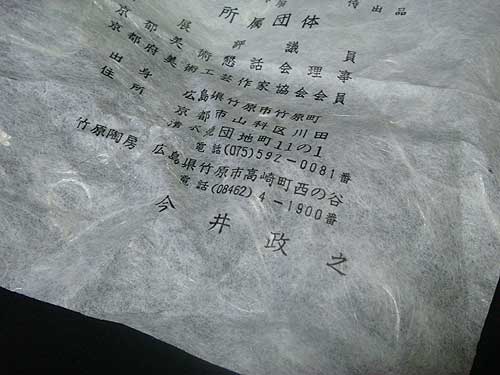 待出品
所属団体
展 評議員
京都美術懇話会理事
京都府美術工芸作家協会会員
出身 広島県竹原市竹原町
住所 京都市山科区川田
清水焼団地町11の1
電話(075)592-0081番
竹原陶房 広島県竹原市高崎町西の谷
電話(08462)4-1900番
今井政之